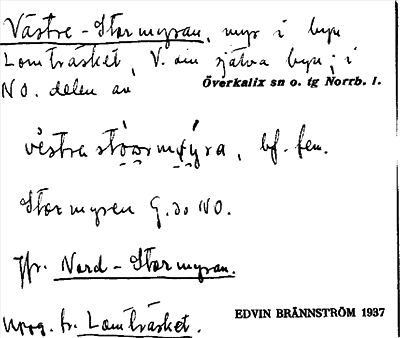 Västre-Stormyran, myr i byn
Lomträsket, V. om själva byn; i
NO. delen av
Överkalix sn o. tg Norrb. l.
vèstra stórmýra, bf. fem.
Stormyren G. do NO.
Jfr. Nord-Stormyran.
Uppg. fr. Lomträsket.
EDVIN BRÄNNSTRÖM 1937